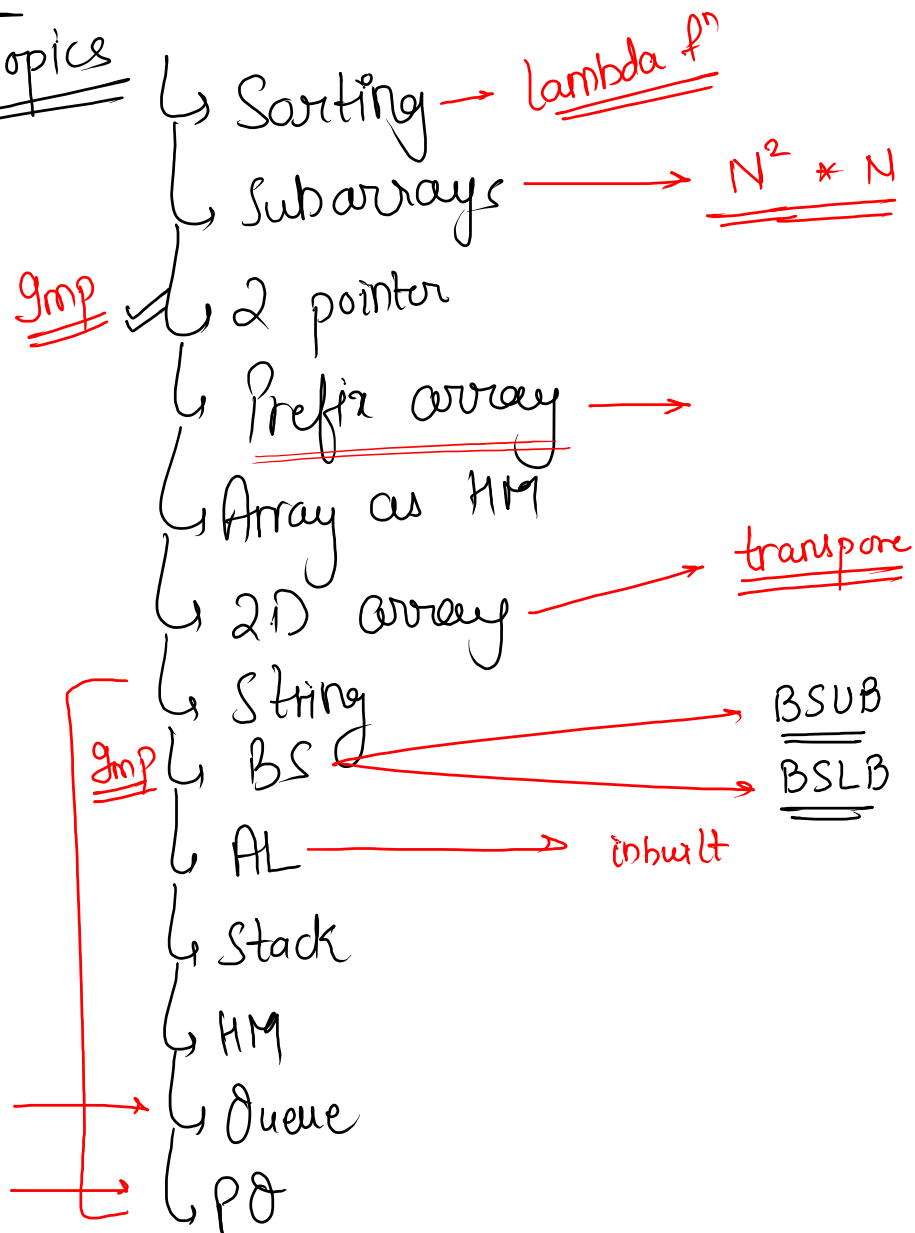 Topics
Sorting → lambda fⁿ
Subarrays → N² * N
Imp 2 pointer
Prefix array →
Array as HM
2D array → transpose
String
Imp BS → BSUB
BSLB
AL → inbuilt
Stack
HM
Queue
PQ